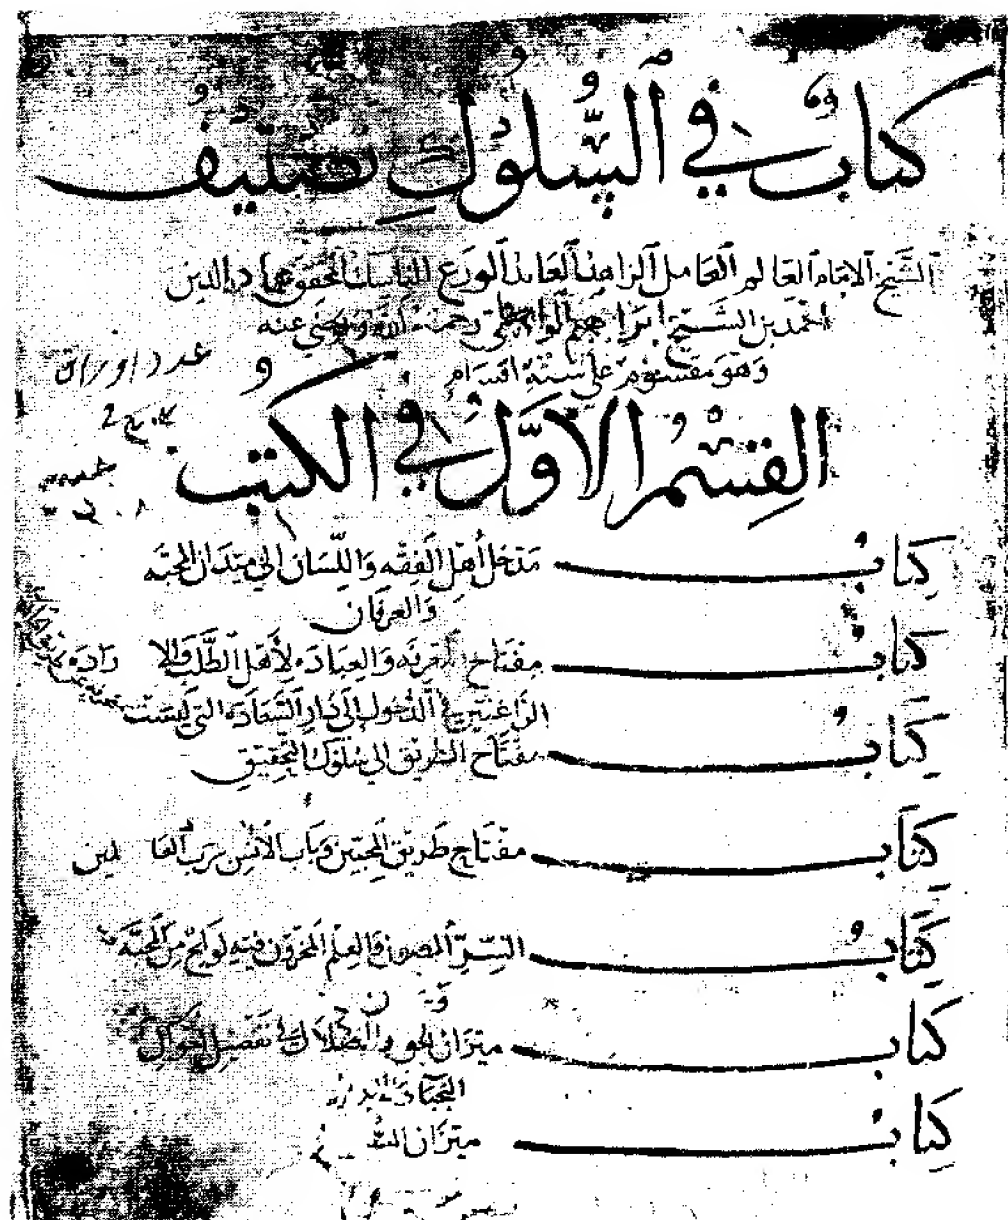 كتاب في السلوك تصنيف
الشيخ الامام العالم العامل الزاهد العابد الورع الناسك المحقق عماد الدين
احمد بن الشيخ ابراهيم الواسطي رحمه الله ورضي عنه
وهو مقسوم على ستة اقسام
عدد اوراق
القسم الأول في الكتب
كتاب مدخل أهل الفقه واللسان الى ميدان المحبة
والعرفان
كتاب مفتاح والعبادة لأهل الطلب والإرادة
الراغبين في الدخول الى دار السعادة التي ليست
كتاب مفتاح الطريق الى سلوك التحقيق
كتاب مفتاح طريق المحبين وباب الأنس برب العالمين
كتاب السر المصون والعلم المخزون فيه لوائح من المحبة
كتاب ميزان والضلال في تفصيل أحوال
كتاب ميزان